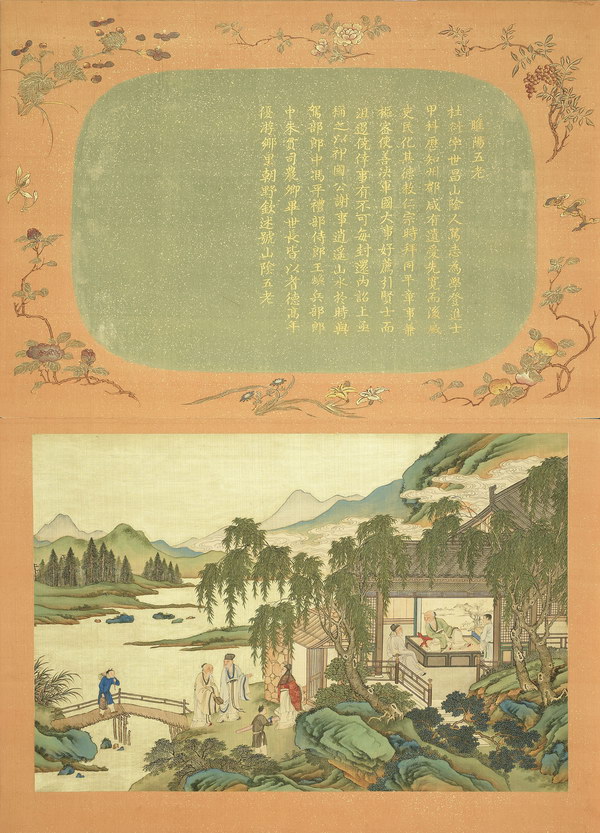 睢陽五老
杜衍字世昌山陰人篤志為學登進士
甲科歷知州郡咸有遺愛先寬而濟威
吏民化其德教仁宗時拜同平章事兼
樞密使善決軍國大事好薦引賢士而
沮遏僥倖事有不可每封還內詔上亟
稱之以祁國公謝事逍遙山水於時與
駕部郎中馮平禮部侍郎王渙兵部郎
中朱貫司農卿畢世長皆以耆德高年
優游鄉里朝野欽述號山陰五老